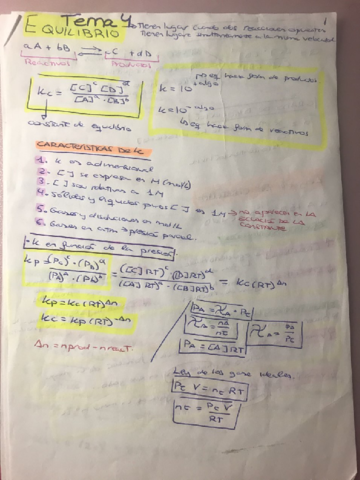 Tema 4
EQUILIBRIO
tienen lugar cuando dos reacciones opuestas
tienen lugar simultáneamente a la misma velocidad
1
aA + bB ⇌ cC + dD
Reactivos Productos
Kc = [C]^c · [D]^d / [A]^a · [B]^b
constante de equilibrio
K = 10
K = 10
CARACTERÍSTICAS DE Kc
1. K es adimensional
2. [ ] se expresa en M (mol/L)
3. [ ] son relativas a 1M
4. Sólidos y líquidos puros [ ] es 1M → no aparecen en la
CONSTANTE
5. Gases y disoluciones en mol/L
6. Gases en atm → presión parcial
K en función de la presión
= ([C]RT)^c · ([D]RT)^d / ([A]RT)^a · ([B]RT)^b = Kc (RT)^Δn
Kp = Kc (RT)^Δn
Kc = Kp (RT)^-Δn
Δn = nprod - nreact.
PA = XA · Pt
XA = nA / nt
XA = PA / Pt
PA = [A] RT
Ley de los gases ideales
Pt V = nt RT
nt = Pt V / RT